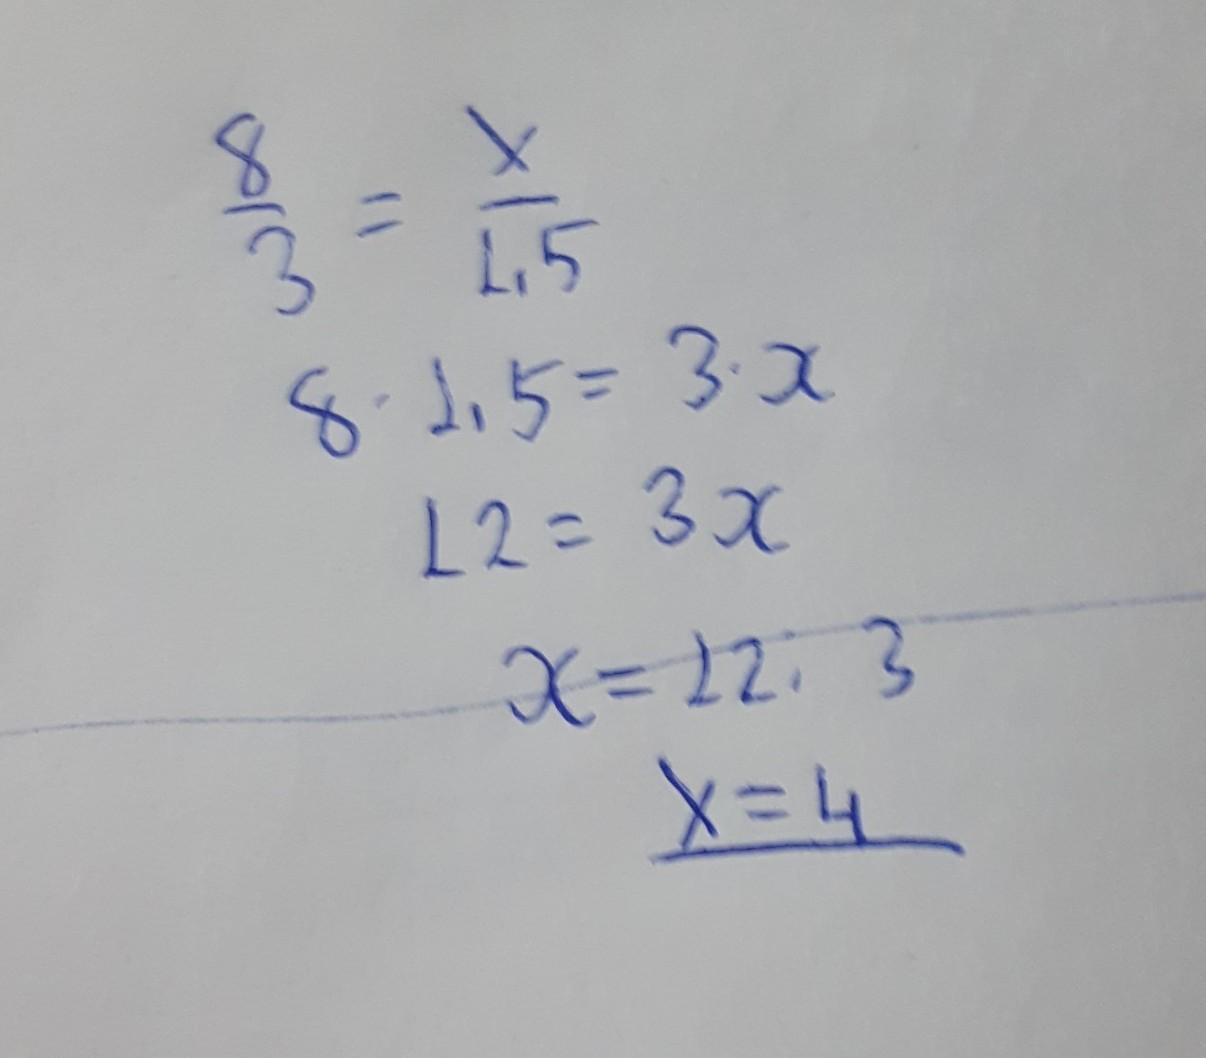 8/3 = x/1,5
8 · 1,5 = 3 · x
12 = 3x
x = 12 . 3
x = 4